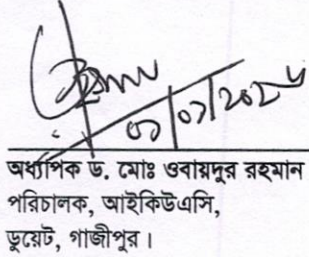 অধ্যাপক ড. মোঃ ওবায়দুর রহমান
পরিচালক, আইকিউএসি,
ডুয়েট, গাজীপুর।